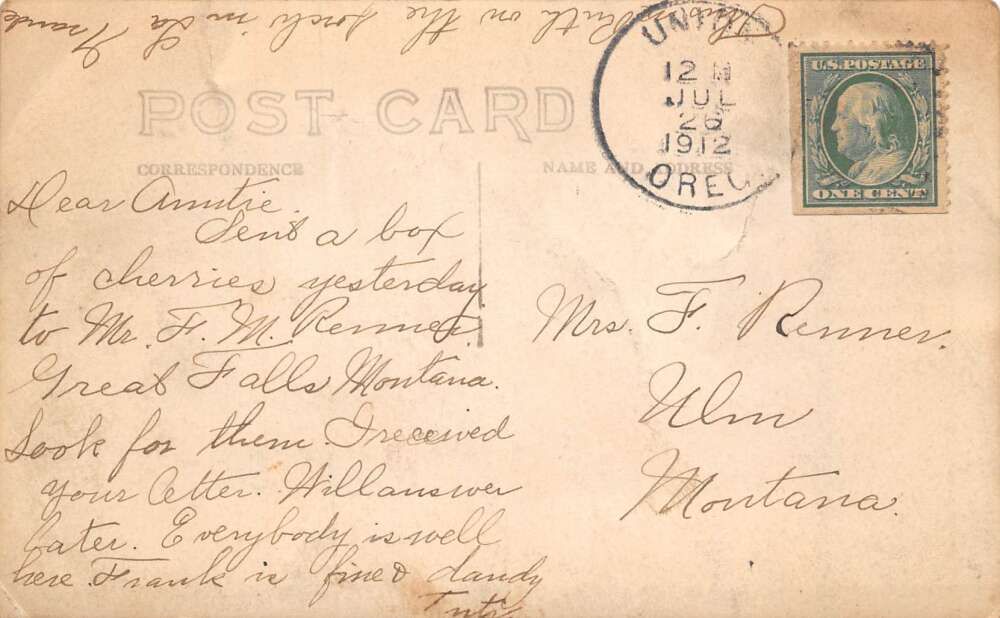 Ruth on the porch in La Grande
POST CARD
CORRESPONDENCE
NAME AND ADDRESS
UNION
12 M
JUL
26
1912
OREG.
U.S. POSTAGE
ONE CENT
Dear Auntie.
Sent a box
of cherries yesterday
to Mr. F. M. Renner.
Great Falls Montana.
Look for them. I received
your letter. Will answer
later. Everybody is well
here. Frank is fine & dandy
Mrs. F. Renner.
Ulm
Montana.